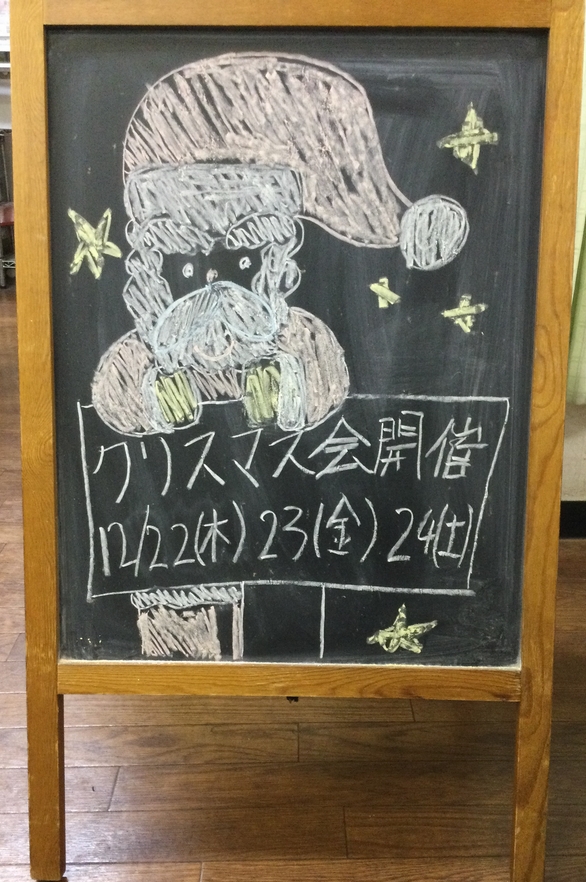 クリスマス会開催
12/22(木) 23(金) 24(土)